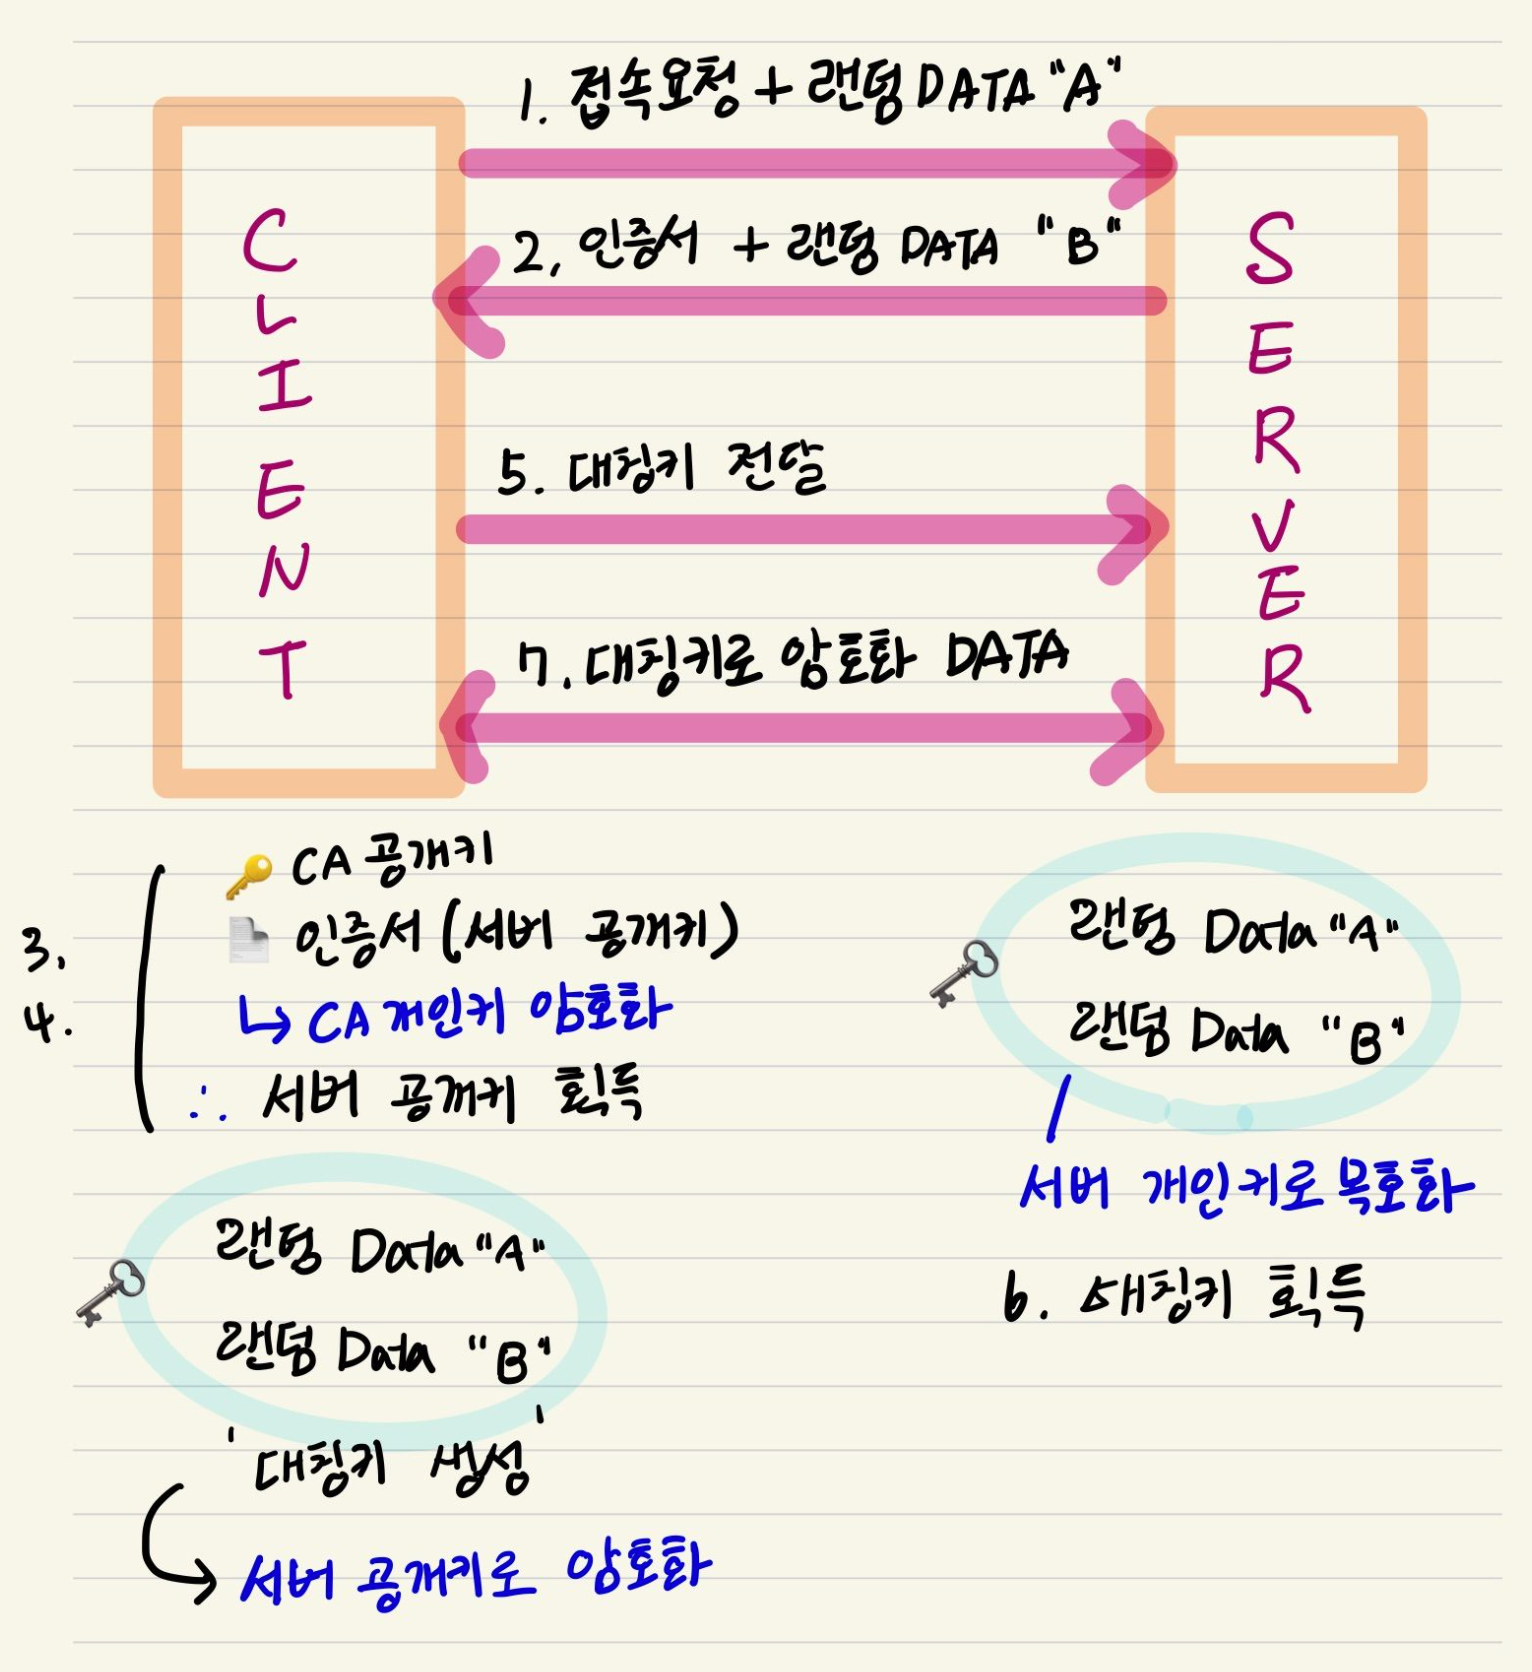 1. 접속요청 + 랜덤 DATA "A"
CLIENT
2. 인증서 + 랜덤 DATA "B"
SERVER
5. 대칭키 전달
7. 대칭키로 암호화 DATA
CA 공개키
3.
인증서 (서버 공개키)
4.
↳ CA 개인키 암호화
∴ 서버 공개키 획득
랜덤 Data "A"
랜덤 Data "B"
'대칭키 생성'
서버 공개키로 암호화
랜덤 Data "A"
랜덤 Data "B"
서버 개인키로 복호화
6. 대칭키 획득